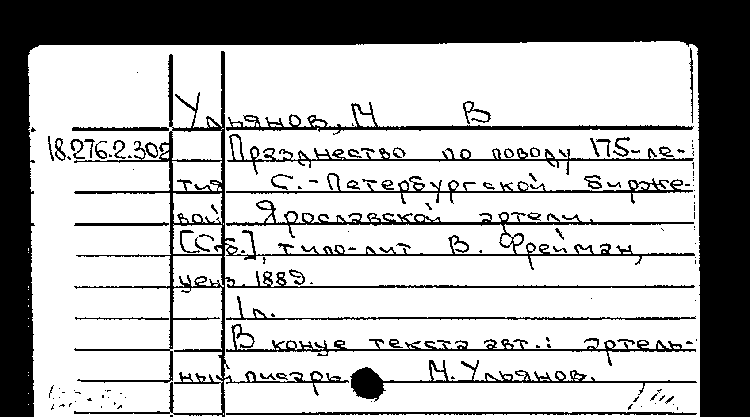 Ульянов, М В
18.276.2.302 Празднество по поводу 175-ле-
тия С.-Петербургской бирже-
вой Ярославской артели.
[Спб.], типо-лит. В. Фрейман,
ценз. 1889.
1 л.
В конце текста авт.: артель-
ный писарь М. Ульянов.